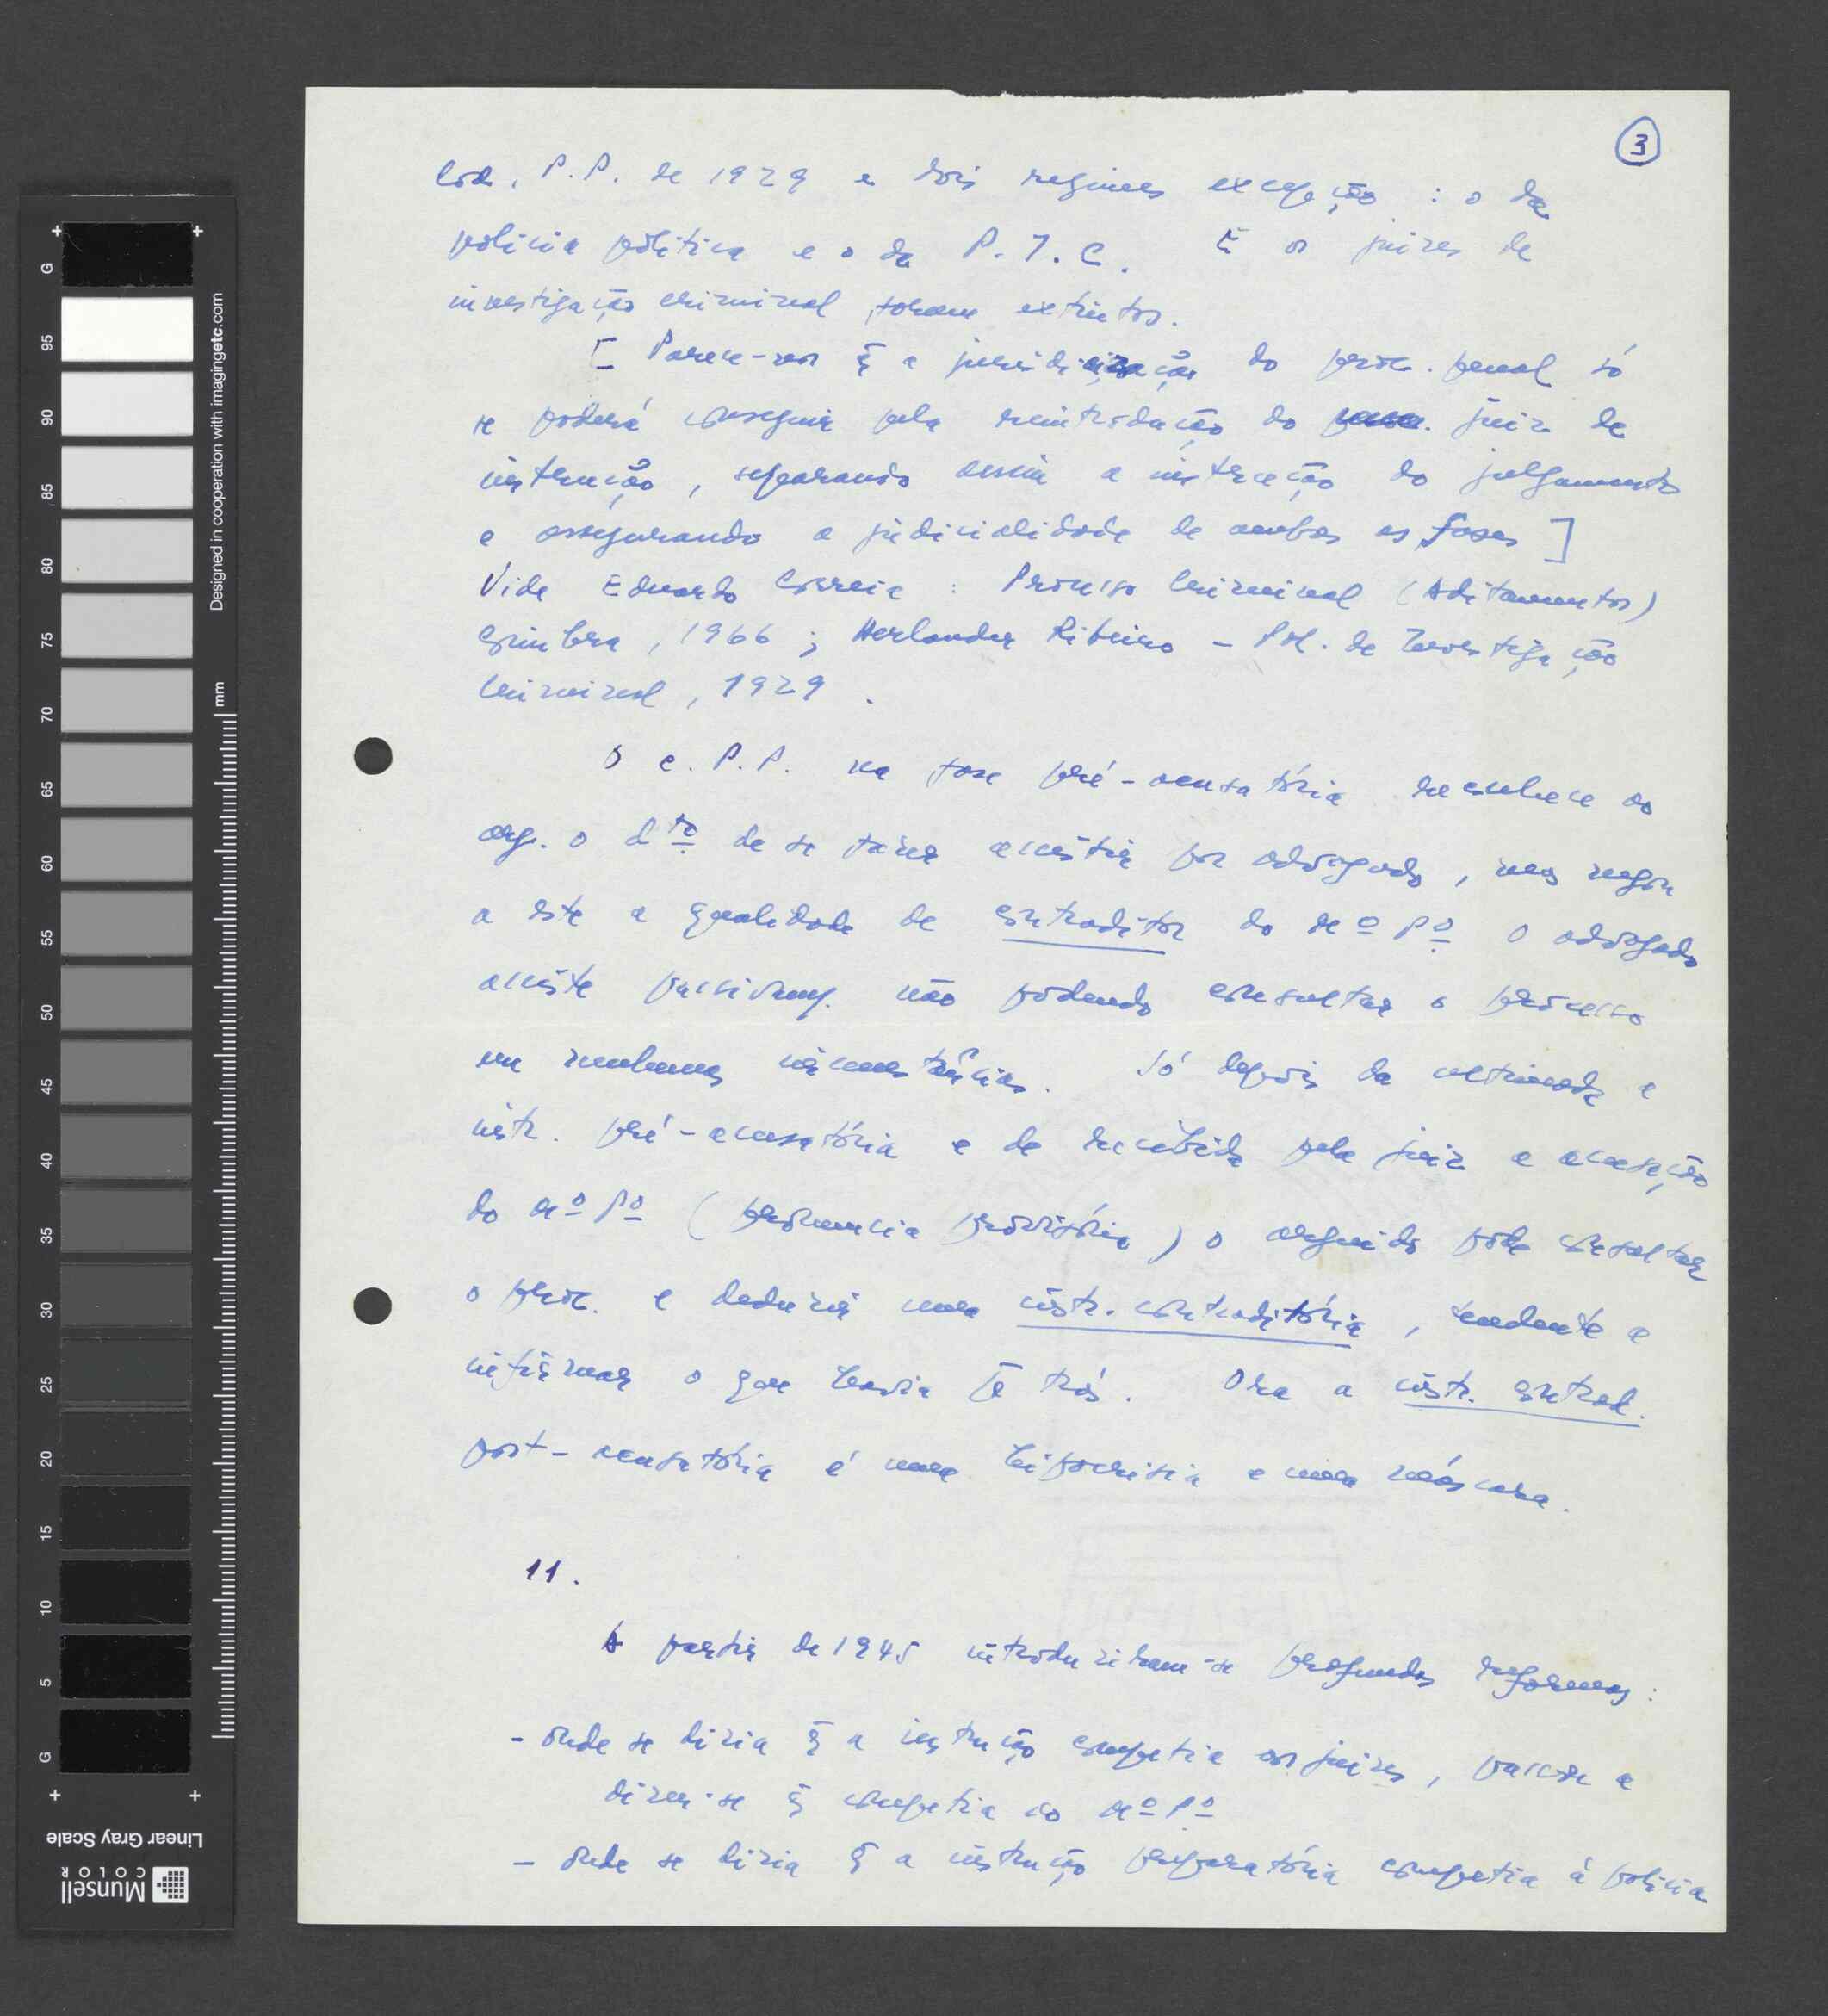 3
Cod. P.P. de 1929 e dois regimes excepção : o da
polícia política e o da P.I.C. E os juizes de
investigação criminal foram extintos.
[ Parece-nos q̃ a jurisdicização do proc. penal só
se poderá conseguir pela reintrodução do juiz de
instrução, separando assim a instrução do julgamento
e assegurando a judicialidade de ambas as fases ]
Vide Eduardo Correia : Processo Criminal (Aditamentos)
Coimbra, 1966 ; Herlander Ribeiro - Pol. de Investigação
Criminal, 1929.
O C.P.P. na fase pré-acusatória reconhece ao
arg. o dto de se fazer assistir por advogado, mas nega
a este a qualidade de contraditor do Mº Pº O advogado
assiste passivam. não podendo consultar o processo
em nenhumas circunstâncias. Só depois da ultimada a
instr. pré-acusatória e de recebida pelo juiz a acusação
do Mº Pº (pronuncia provisória) o arguido pode consultar
o proc. e deduzir uma instr. contraditória, tendente a
infirmar o que havia p̃ trás. Ora a instr. contrad.
post-acusatória é uma hipocrisia e uma máscara.
11.
A partir de 1945 introduziram-se profundas reformas :
- Onde se dizia q̃ a instrução competia aos juizes, passou a
dizer-se q̃ competia ao Mº Pº
- Onde se dizia q̃ a instrução preparatória competia à polícia
+ +
G 95 90 85 80 75 70 65 60 55 50 45 40 35 30 25 20 15 10 5 G
mm
Designed in cooperation with imagingetc.com
+ +
Linear Gray Scale
Munsell
COLOR